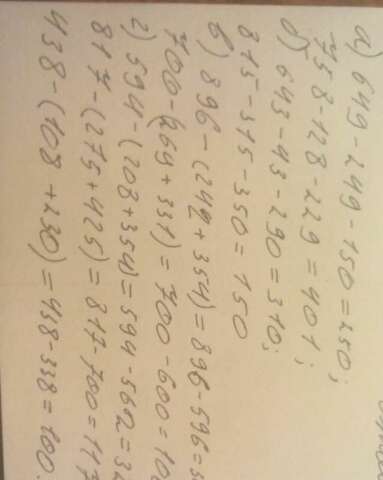 а) 649-249-150=250;
758-128-229=401;
б) 643-43-290=310;
815-315-350=150
в) 896-(242+354)=896-596=
700-(269+331)=700-600=10
г) 594-(208+354)=594-562=3
817-(275+425)=817-700=117
438-(108+230)=438-338=100.